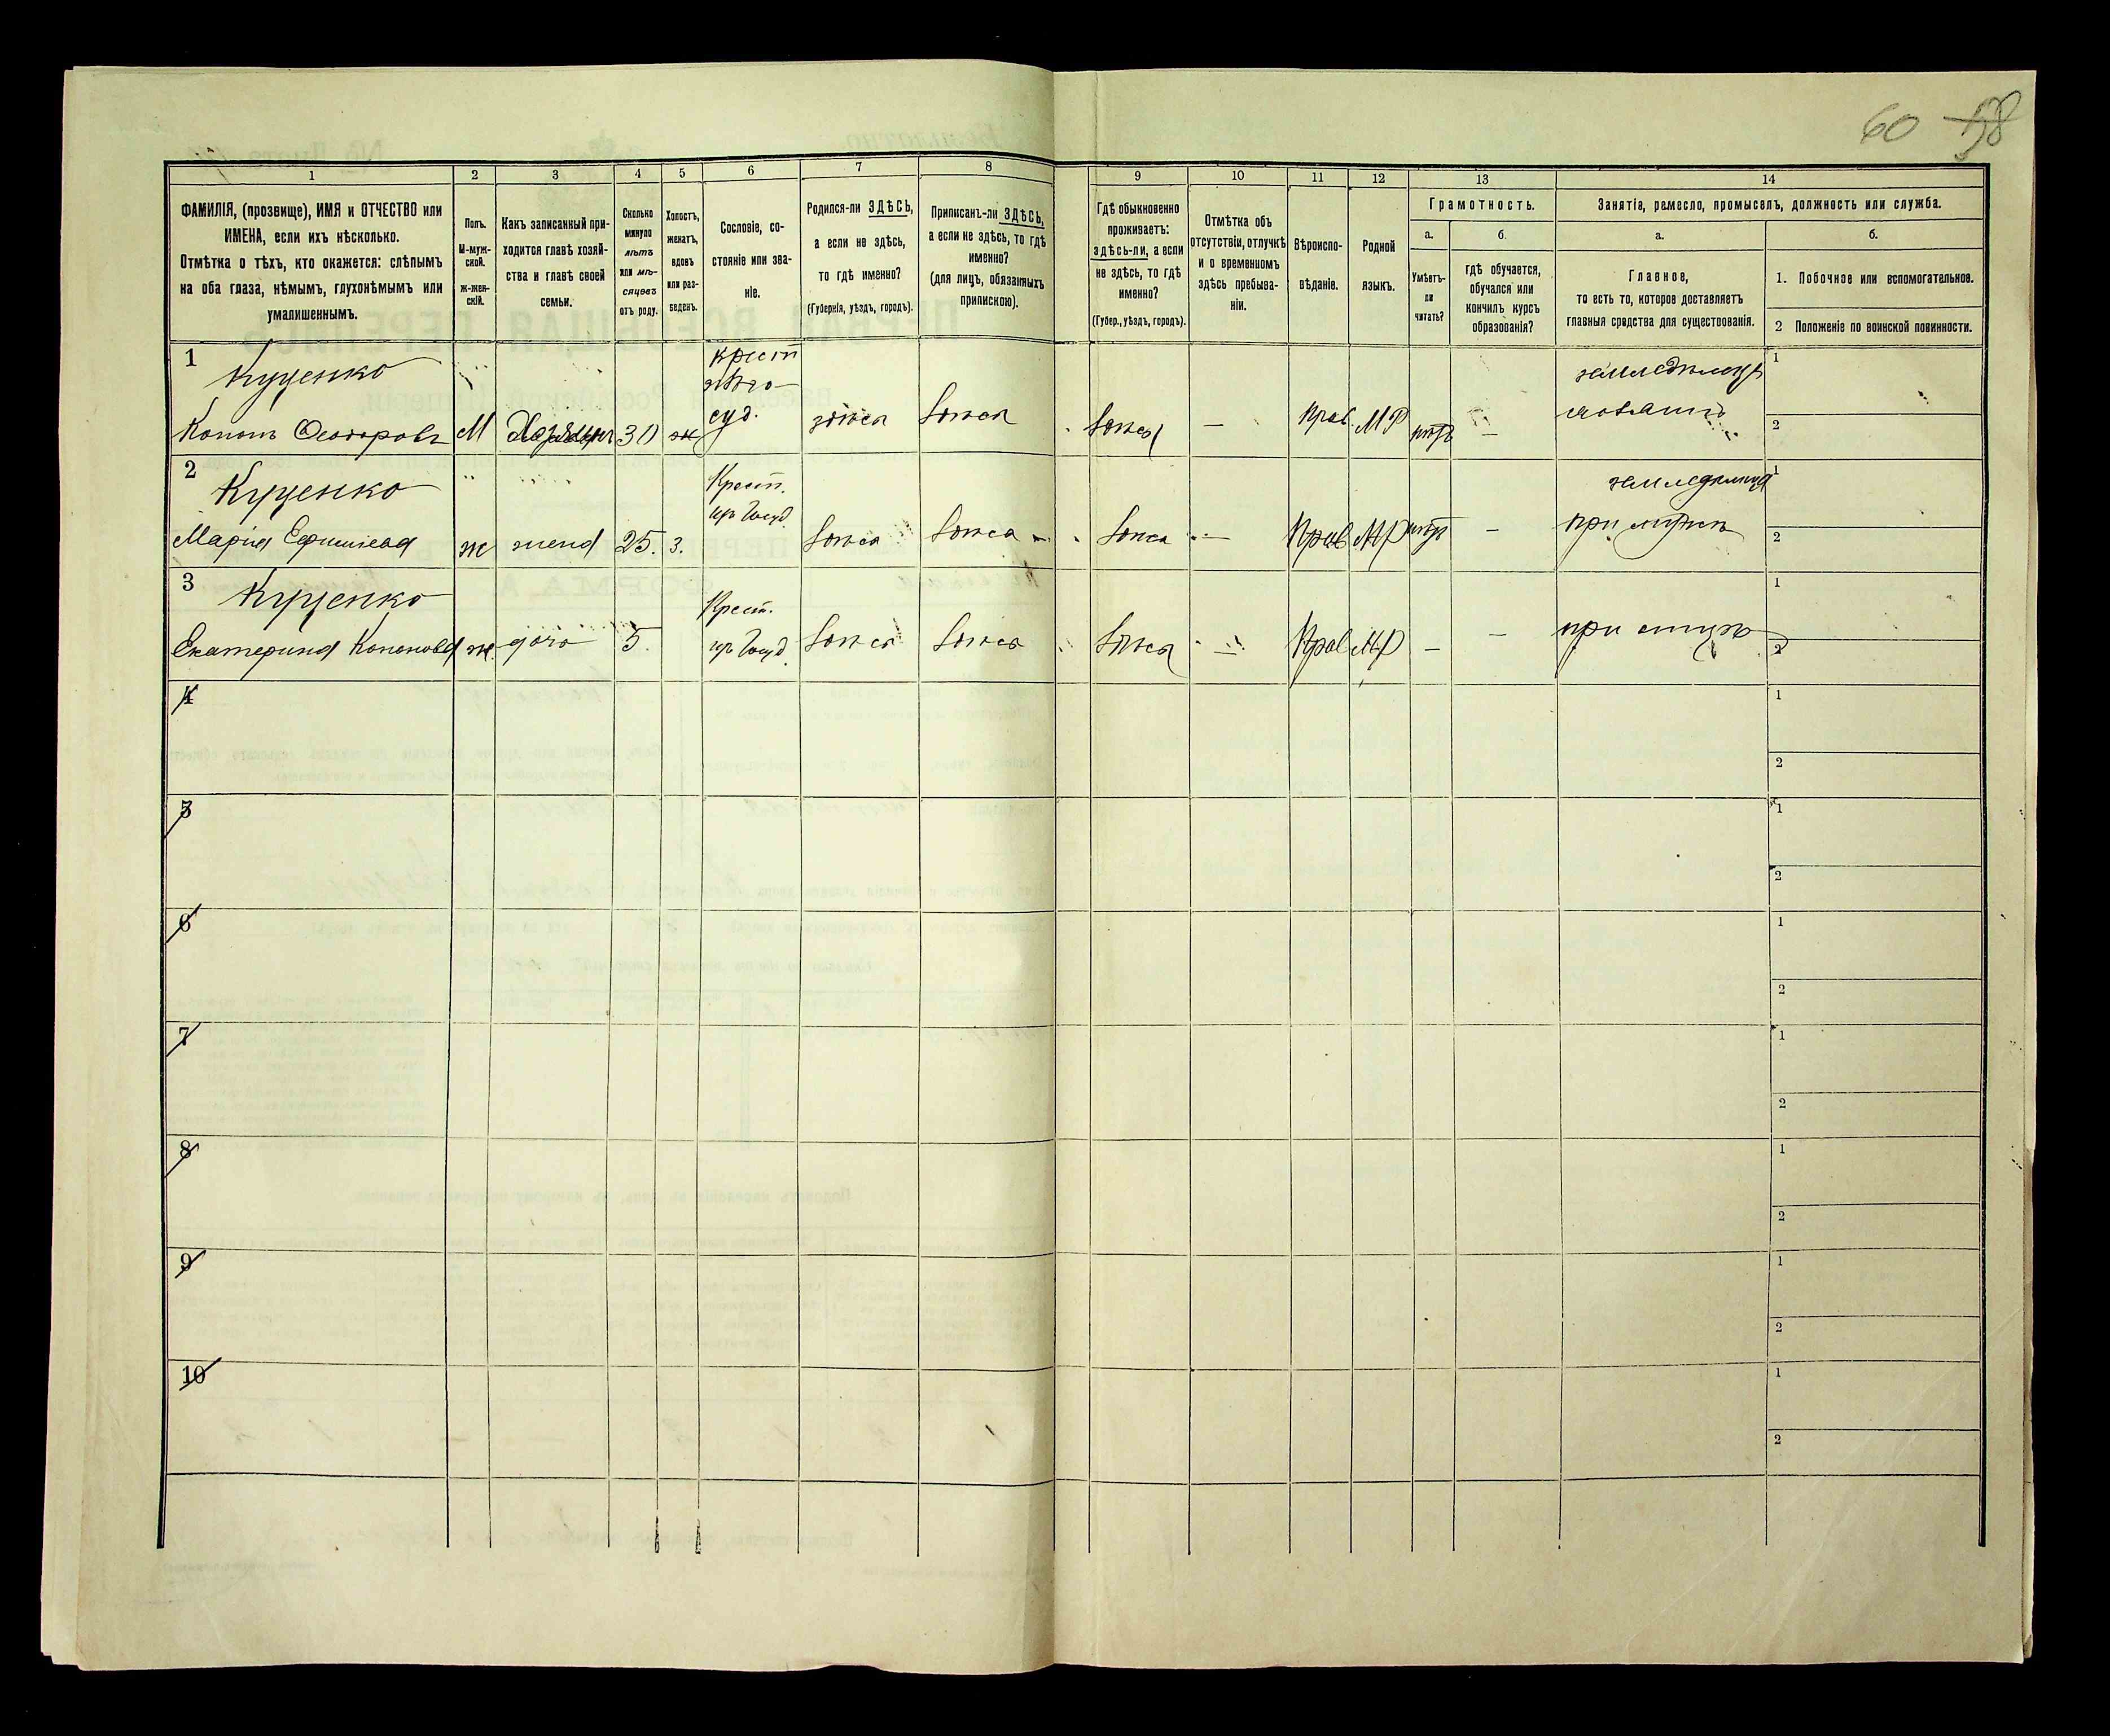 60 58
1 2 3 4 5 6 7 8 9 10 11 12 13 14
ФАМИЛІЯ, (прозвище), ИМЯ и ОТЧЕСТВО или
ИМЕНА, если ихъ нѣсколько.
Отмѣтка о тѣхъ, кто окажется: слѣпымъ
на оба глаза, нѣмымъ, глухонѣмымъ или
умалишеннымъ.
Полъ.
М-муж-
ской.
ж-жен-
скій.
Какъ записанный при-
ходится главѣ хозяй-
ства и главѣ своей
семьи.
Сколько
минуло
лѣтъ
или мѣ-
сяцевъ
отъ роду.
Холостъ,
женатъ,
вдовъ
или раз-
веденъ.
Сословіе, со-
стояніе или зва-
ніе.
Родился-ли ЗДѢСЬ,
а если не здѣсь,
то гдѣ именно?
(Губернія, уѣздъ, городъ).
Приписанъ-ли ЗДѢСЬ,
а если не здѣсь, то гдѣ
именно?
(для лицъ, обязанныхъ
припискою).
Гдѣ обыкновенно
проживаетъ:
здѣсь-ли, а если
не здѣсь, то гдѣ
именно?
(Губер., уѣздъ, городъ).
Отмѣтка объ
отсутствіи, отлучкѣ
и о временномъ
здѣсь пребыва-
ніи.
Вѣроиспо-
вѣданіе.
Родной
языкъ.
Грамотность.
а.
Умѣетъ-
ли
читать?
б.
гдѣ обучается,
обучался или
кончилъ курсъ
образованія?
Занятіе, ремесло, промыселъ, должность или служба.
а.
Главное,
то есть то, которое доставляетъ
главныя средства для существованія.
б.
1. Побочное или вспомогательное.
2 Положеніе по воинской повинности.
1 Куценко крест 1
Кононъ Феодоровъ М Хозяинъ 30 ж здѣсь здѣсь здѣсь — Прав. МР нѣтъ — 2
2 Куценко Крест. 1
Марія Ефимiева ж жена 25. З. здѣсь здѣсь здѣсь — Прав МР нѣтъ — при мужѣ 2
3 Куценко Крест. 1
Екатерина Кононова ж. дочь 5. здѣсь здѣсь здѣсь — Прав МР — — при отцѣ 2
4 1
2
5 1
2
6 1
2
7 1
2
8 1
2
9 1
2
10 1
2